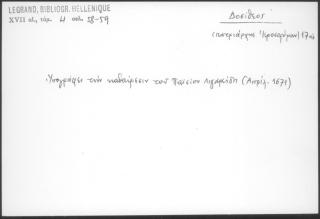 LEGRAND, BIBLIOGR. HELLENIQUE
XVII αἰ, τόμ. 4 σελ. 58-59
Δοσίθεος
(πατριάρχης Ἱεροσολύμων) 17 αἰ.
Ὑπογράφει τὴν καθαίρεσιν τοῦ Παϊσίου Λιγαρείδη (Ἀπρίλ. 1671)